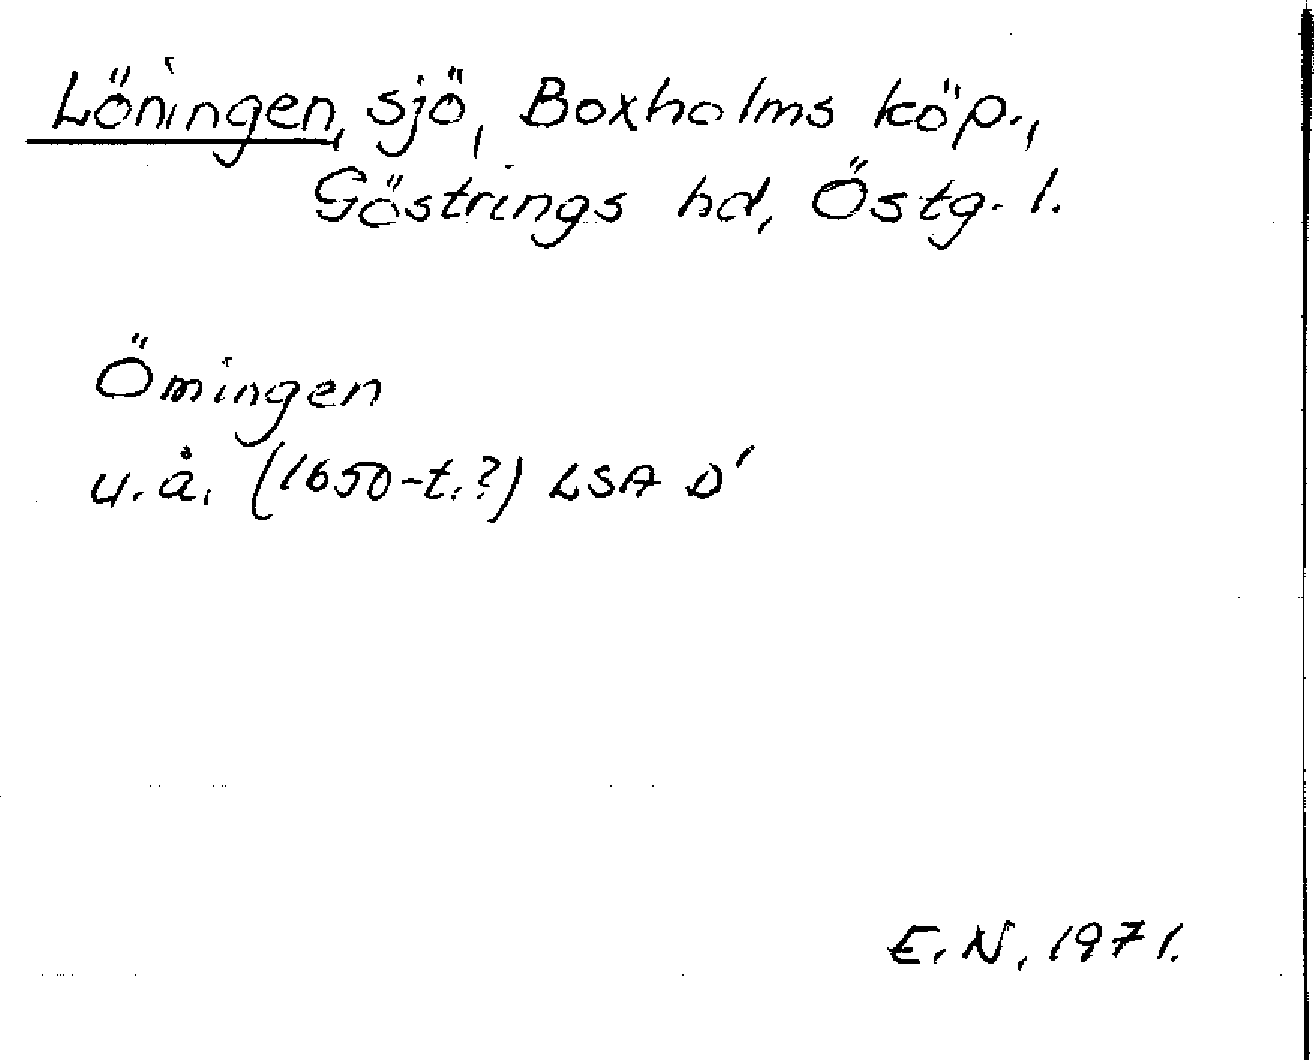 Löningen, sjö, Boxholms köp.,
Göstrings hd, Östg. l.
Ömingen
u.å. (1650-t.?) LSA D'
E.N. 1971.